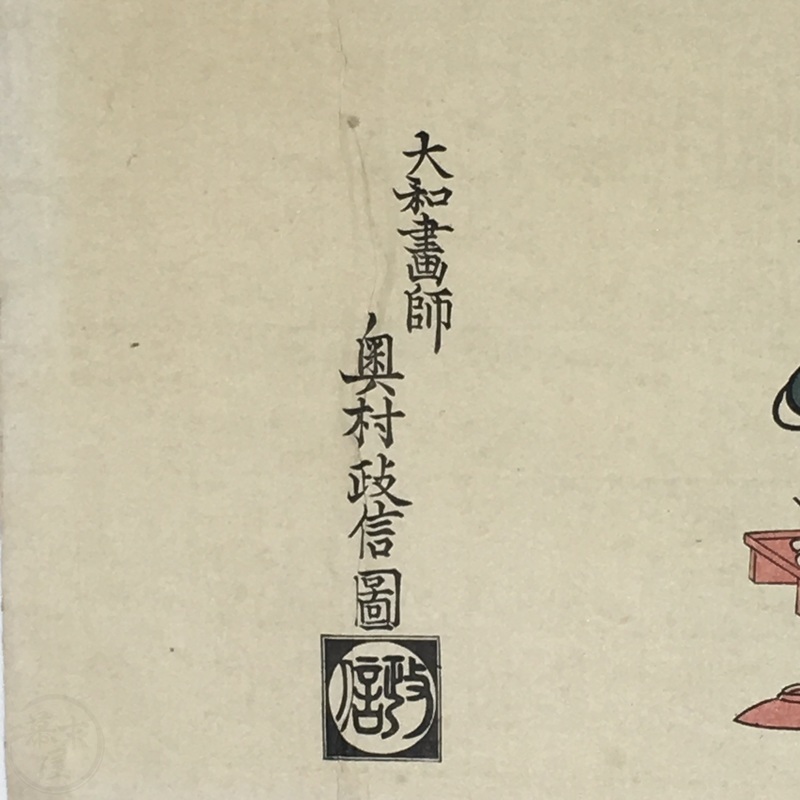 大和畫師
奥村政信圖
政信